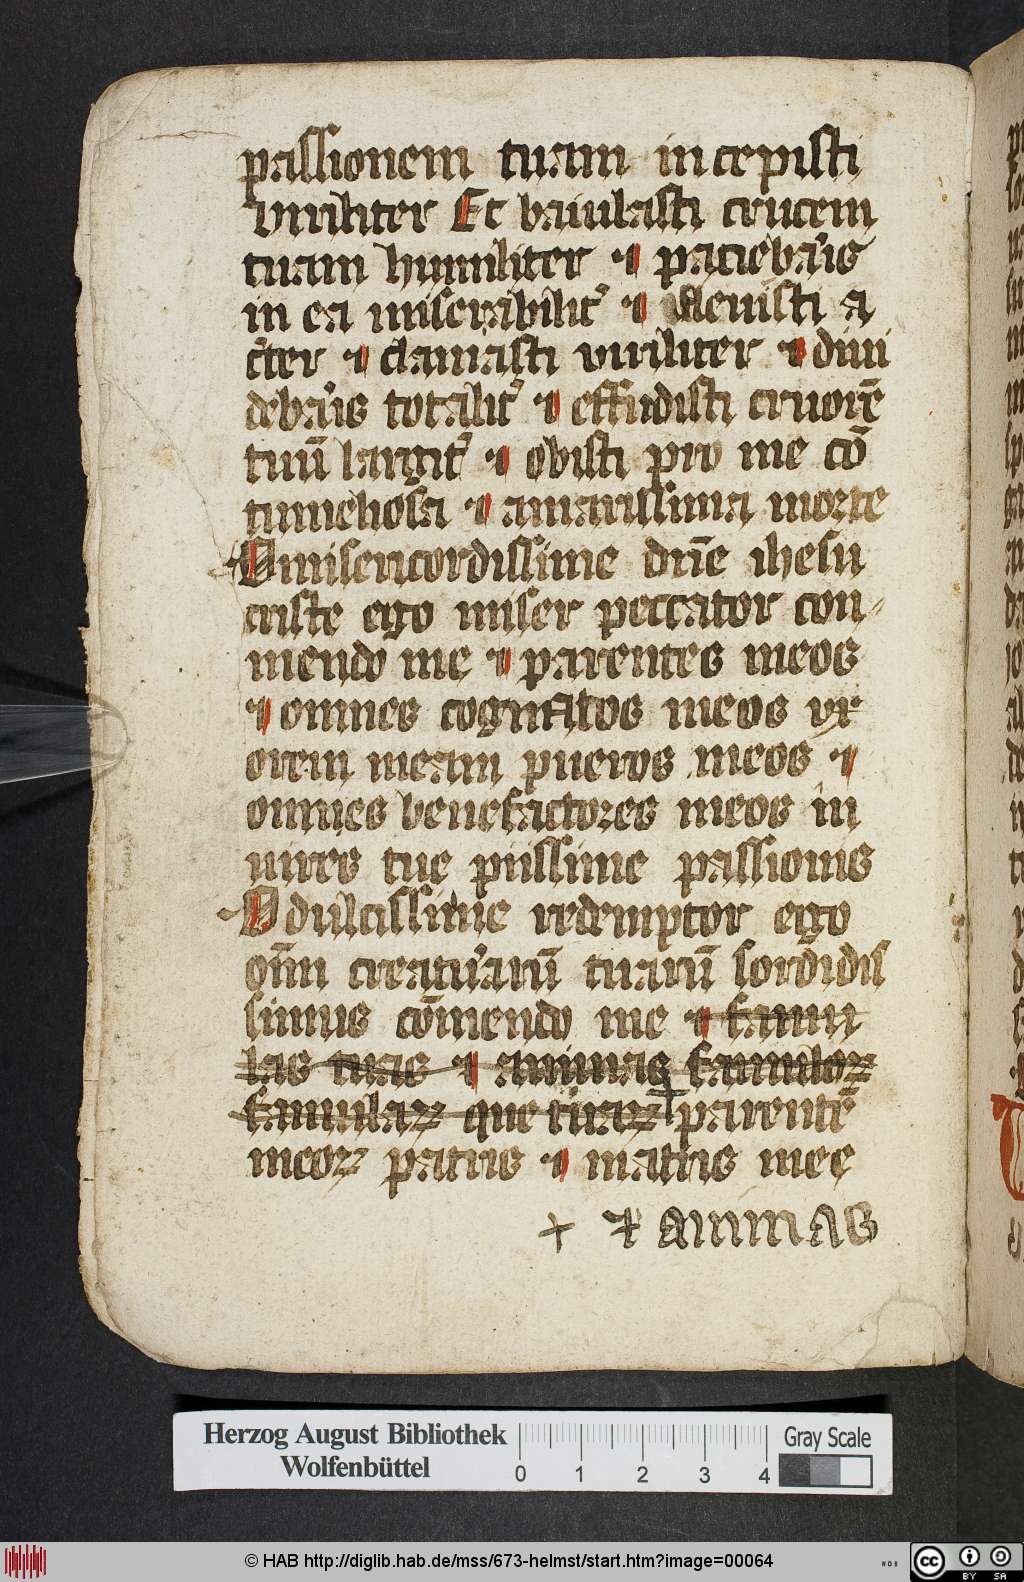 passionem tuam incepisti
viriliter Et baiulasti crucem
tuam humiliter ⁊ pacieba'is
in ea miserabilit' ⁊ fleuisti a
c̄ter ⁊ clamasti viriliter ⁊ diui
deba'is totalit' ⁊ effudisti cruorē
tuū largit' ⁊ obisti pro me cō
tumeliosa ⁊ amarissima morte
O misericordissime dn̄e ihesu
criste ego miser peccator con
mendo me ⁊ parentes meos
⁊ omnes cognatos meos vx
orem meam pueros meos ⁊
omnes benefactores meos in
uires tue piissime passionis
O dulcissime redemptor ego
om̄i creatu'arū tuarū sordidis
simus cōmendo me ⁊ famu
las tuas ⁊ animas famuloꝝ
famulaꝝ que tuaꝝ + parentē
meoꝝ patris ⁊ matris mee
+ ⁊ animas
Herzog August Bibliothek
Wolfenbüttel
0 1 2 3 4
Gray Scale
© HAB http://diglib.hab.de/mss/673-helmst/start.htm?image=00064
cc BY SA